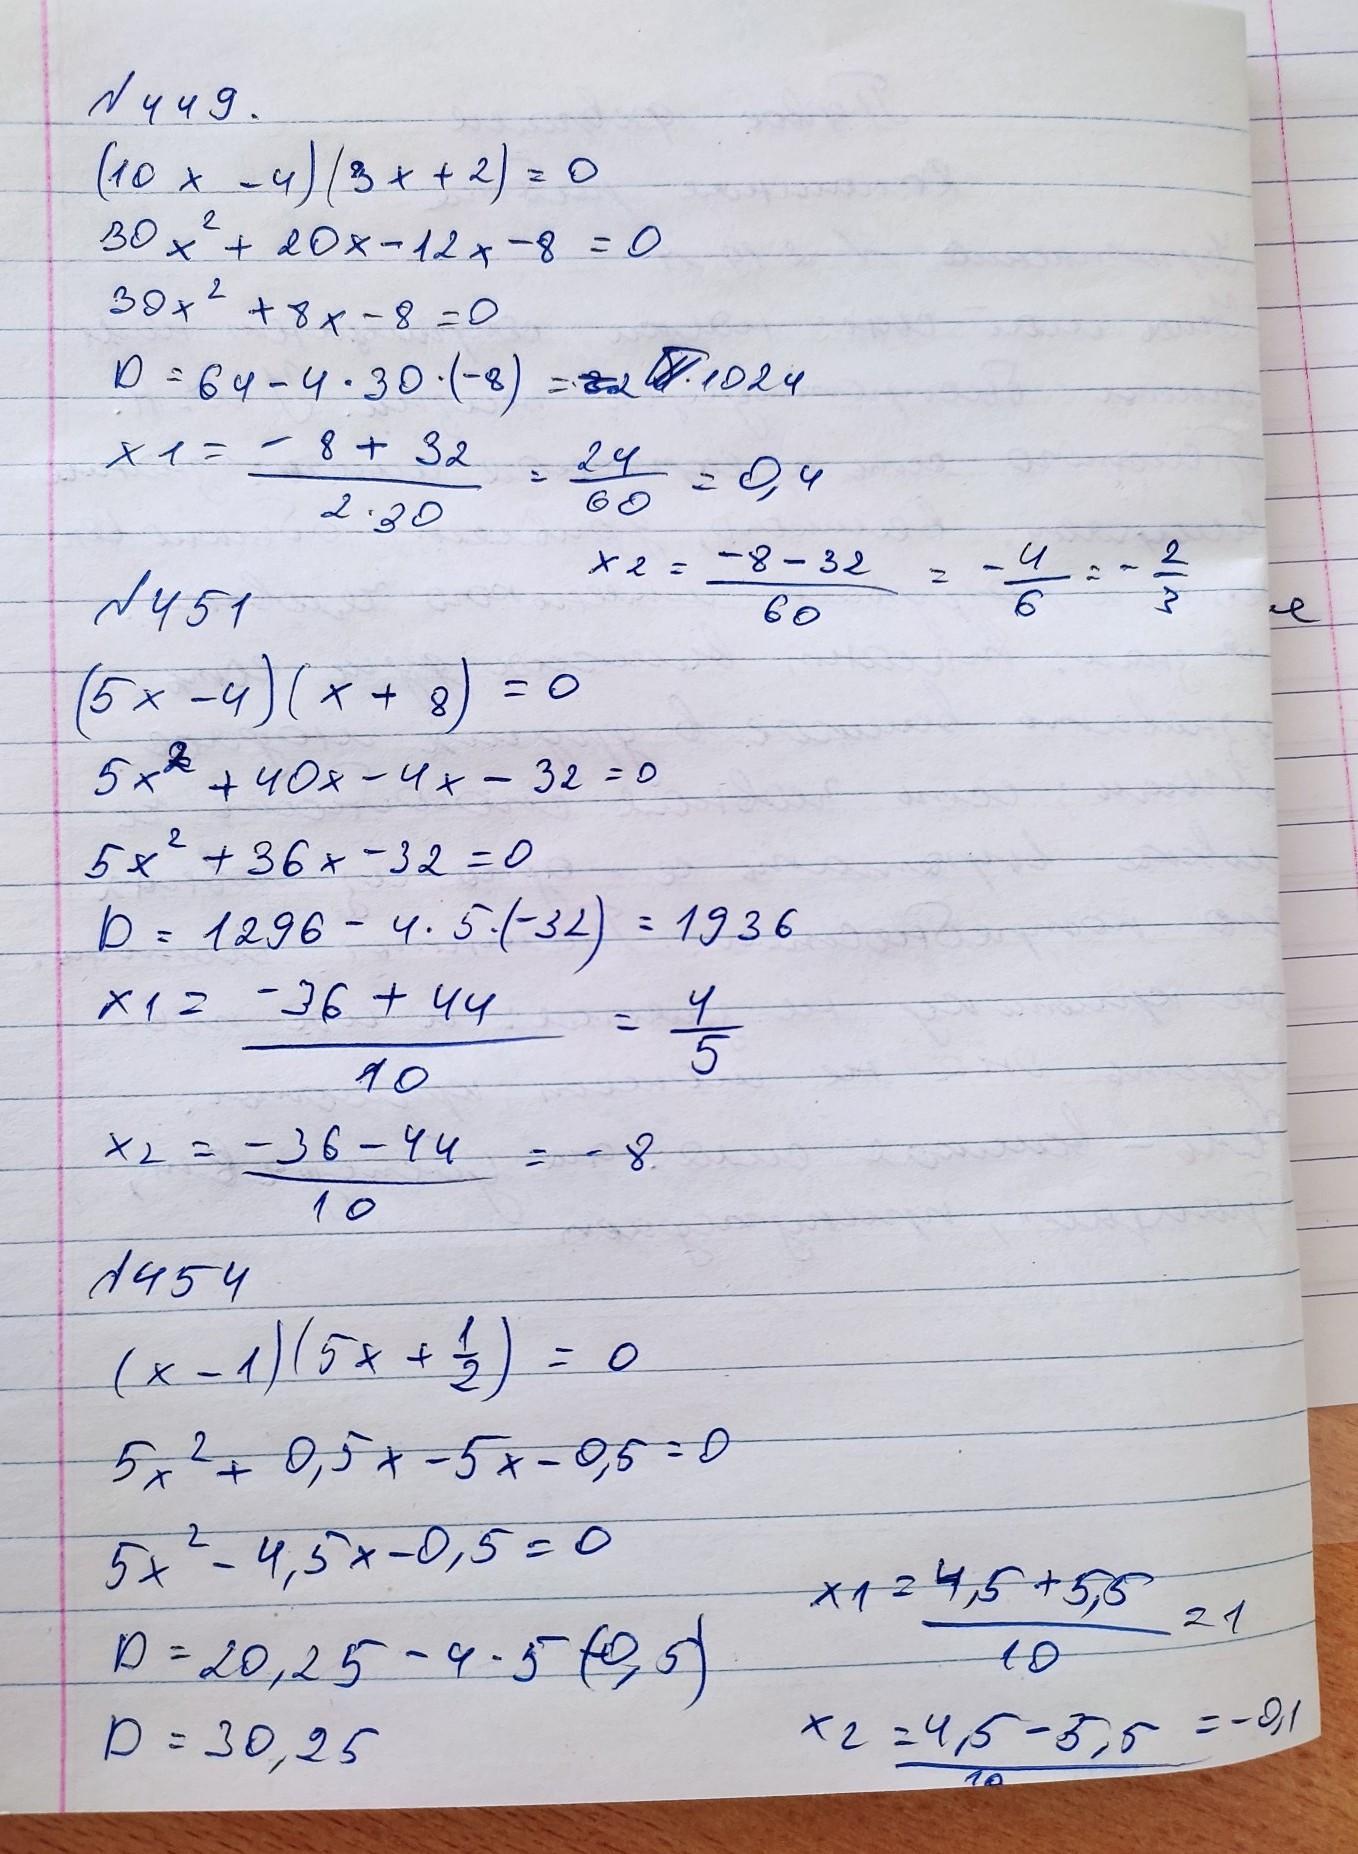 №449.
(10x - 4)(3x + 2) = 0
30x² + 20x - 12x - 8 = 0
30x² + 8x - 8 = 0
D = 64 - 4 · 30 · (-8) = 1024
x1 = (-8 + 32)/(2·30) = 24/60 = 0,4
x2 = (-8 - 32)/60 = -4/6 = -2/3
№451
(5x - 4)(x + 8) = 0
5x² + 40x - 4x - 32 = 0
5x² + 36x - 32 = 0
D = 1296 - 4 · 5 · (-32) = 1936
x1 = (-36 + 44)/10 = 4/5
x2 = (-36 - 44)/10 = -8
№454
(x - 1)(5x + 1/2) = 0
5x² + 0,5x - 5x - 0,5 = 0
5x² - 4,5x - 0,5 = 0
D = 20,25 - 4 · 5 (-0,5)
D = 30,25
x1 = (4,5 + 5,5)/10 = 1
x2 = (4,5 - 5,5)/10 = -0,1